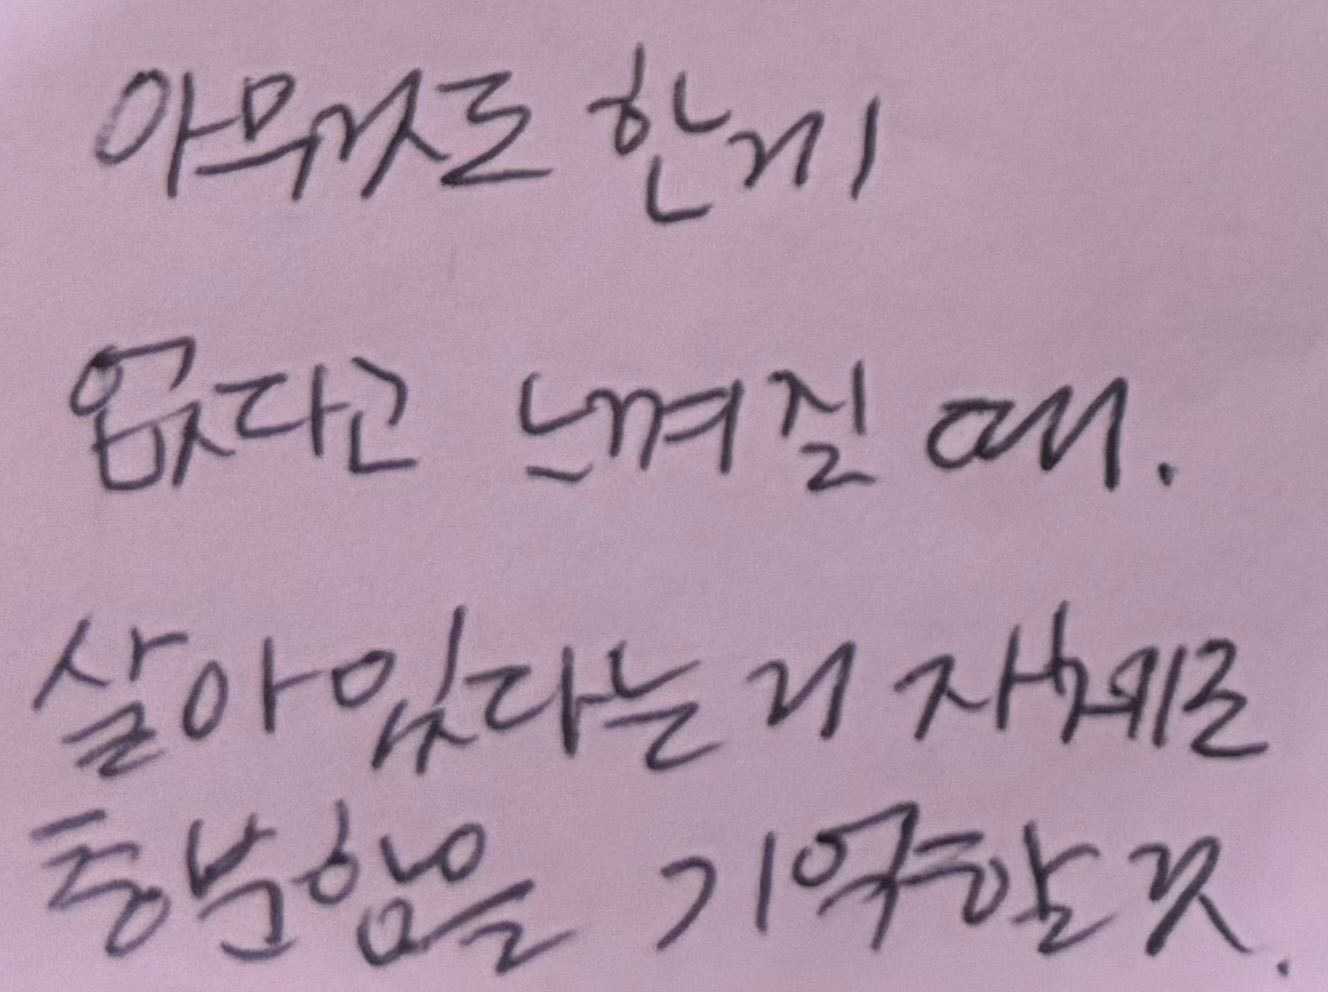 아무것도 한게
없다고 느껴질 때.
살아있다는 거 자체로
충분함을 기억할 것.